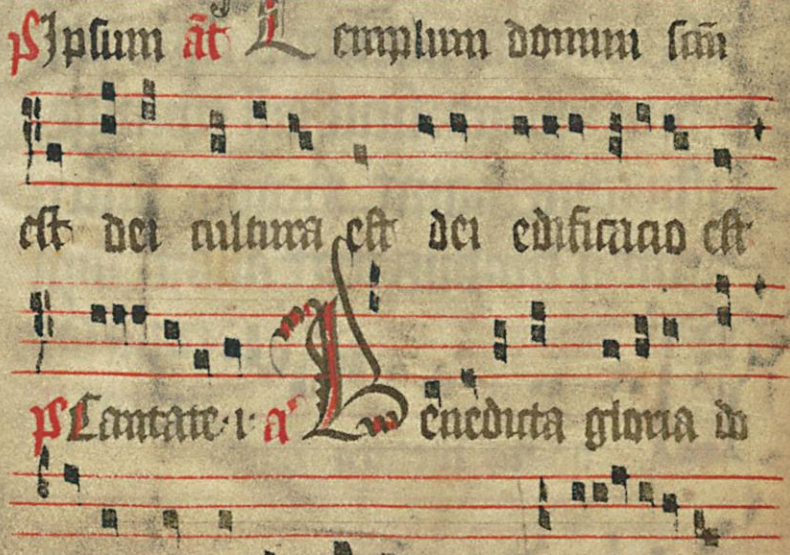 ps Ipsum āt Templum domini scm̄
est dei cultura est dei edificacio est
ps Cantate · i · a Benedicta gloria do